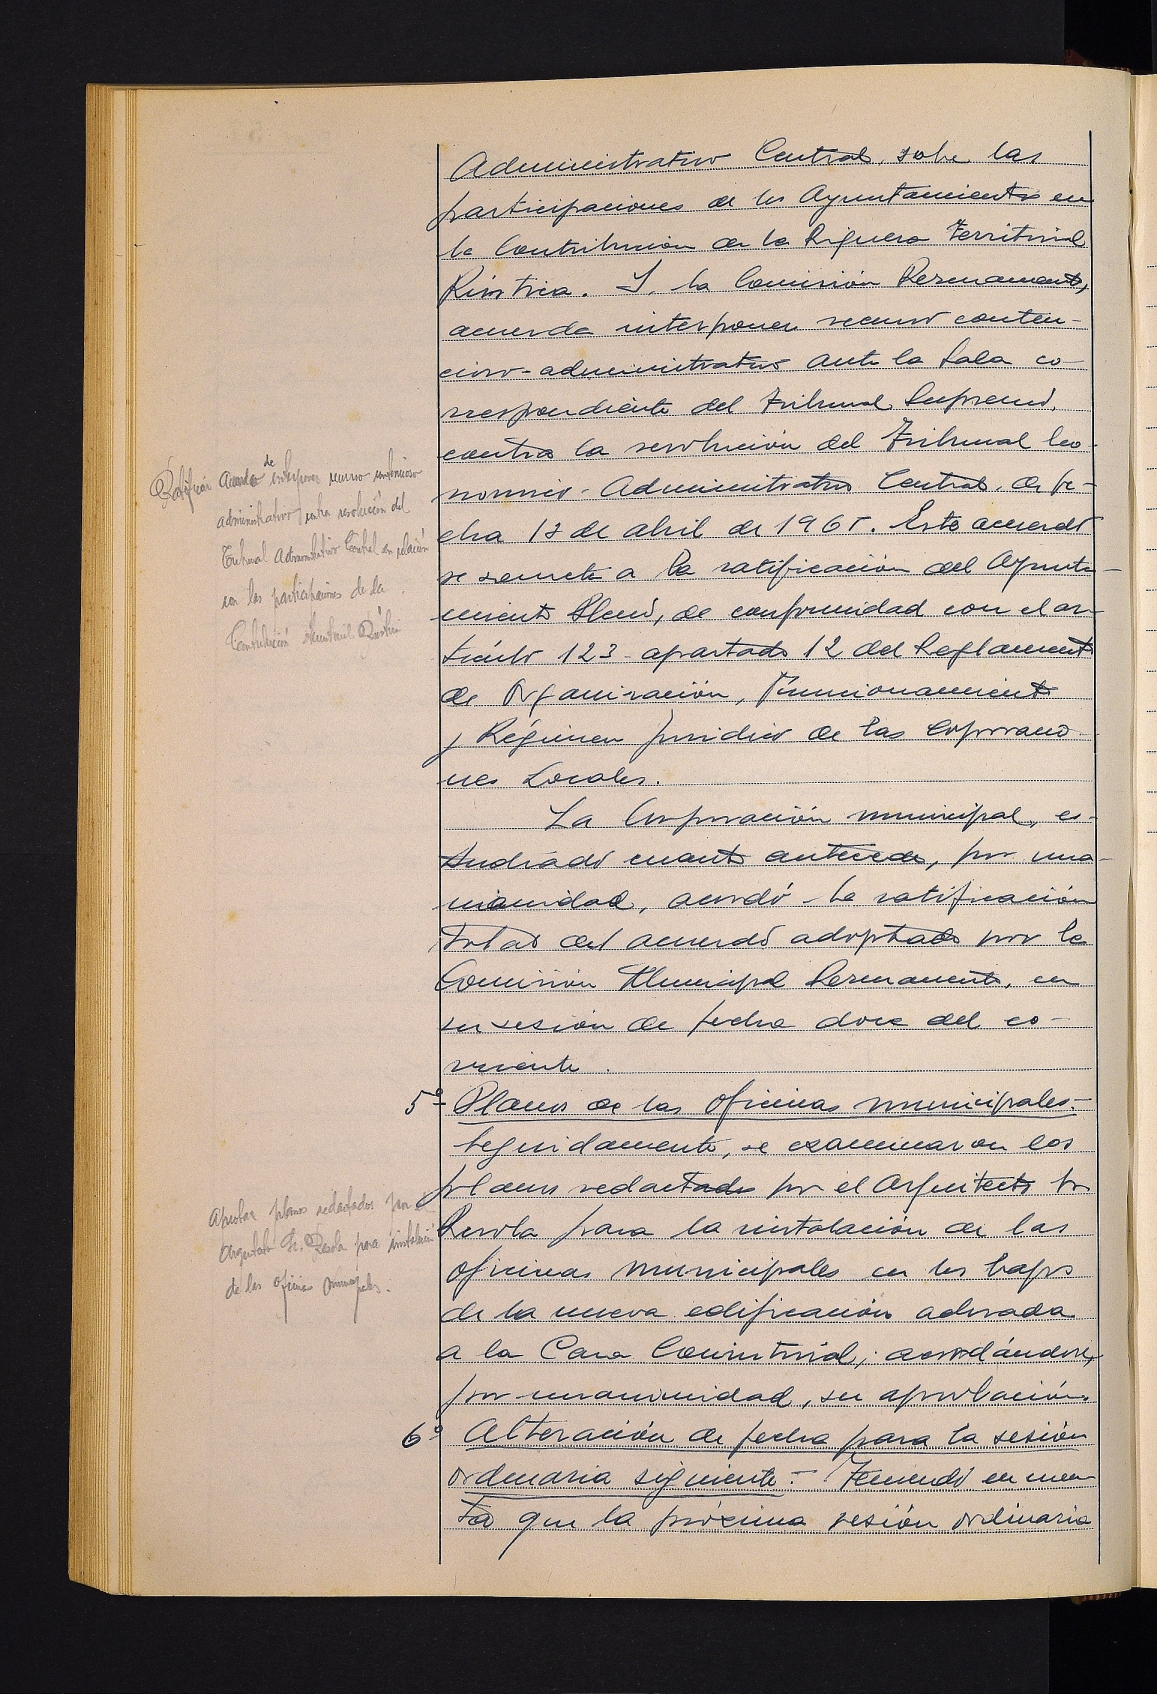 Administrativo Central, sobre las
participaciones de los Ayuntamientos en
la Contribución de la Riqueza Territorial
Rústica. Y, la Comisión Permanente,
acuerda interponer recurso conten-
cioso-administrativo ante la Sala co-
rrespondiente del Tribunal Supremo,
contra la resolución del Tribunal Eco-
nómico-Administrativo Central, de fe-
cha 13 de abril de 1965. Este acuerdo
se somete a la ratificación del Ayunta-
miento Pleno, de conformidad con el ar-
tículo 123 apartado 12 del Reglamento
de Organización, Funcionamiento
y Régimen Jurídico de las Corporacio-
nes Locales.
La Corporación municipal, es-
tudiado cuanto antecede, por una-
nimidad, acordó la ratificación
total del acuerdo adoptado por la
Comisión Municipal Permanente, en
su sesión de fecha doce del co-
rriente.
5º Planos de las oficinas municipales.-
Seguidamente, se examinaron los
planos redactados por el Arquitecto Sr.
Resola para la instalación de las
oficinas municipales en los bajos
de la nueva edificación adosada
a la Casa Consistorial, acordándose,
por unanimidad, su aprobación.
6º Alteración de fecha para la sesión
ordinaria siguiente.- Teniendo en cuen-
ta que la próxima sesión ordinaria
Ratificar Acuerdo de interponer recurso contencioso
administrativo contra resolución del
Tribunal Administrativo Central en relación
con las participaciones de la
Contribución Territorial Rústica
Aprobar planos redactados por el
Arquitecto Sr. Resola para instalación
de las oficinas municipales.